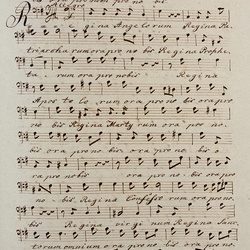 Regina Angelorum Regina Pa-
triarcharum ora pro no bis Regina Prophe-
ta- rum ora pro nobis Regina
Apos to lo rum ora pro no bis ora pro
no- bis Regina Martyrum ora pro no-
bis ora pro no- bis ora pro no- bis
ora pro nobis ora pro no- bis ora pro
no- bis Regina Confesso rum ora pro no-
bis Regina vir gi num Regina Sanc
torum omnium ora pro no bis ora pro no